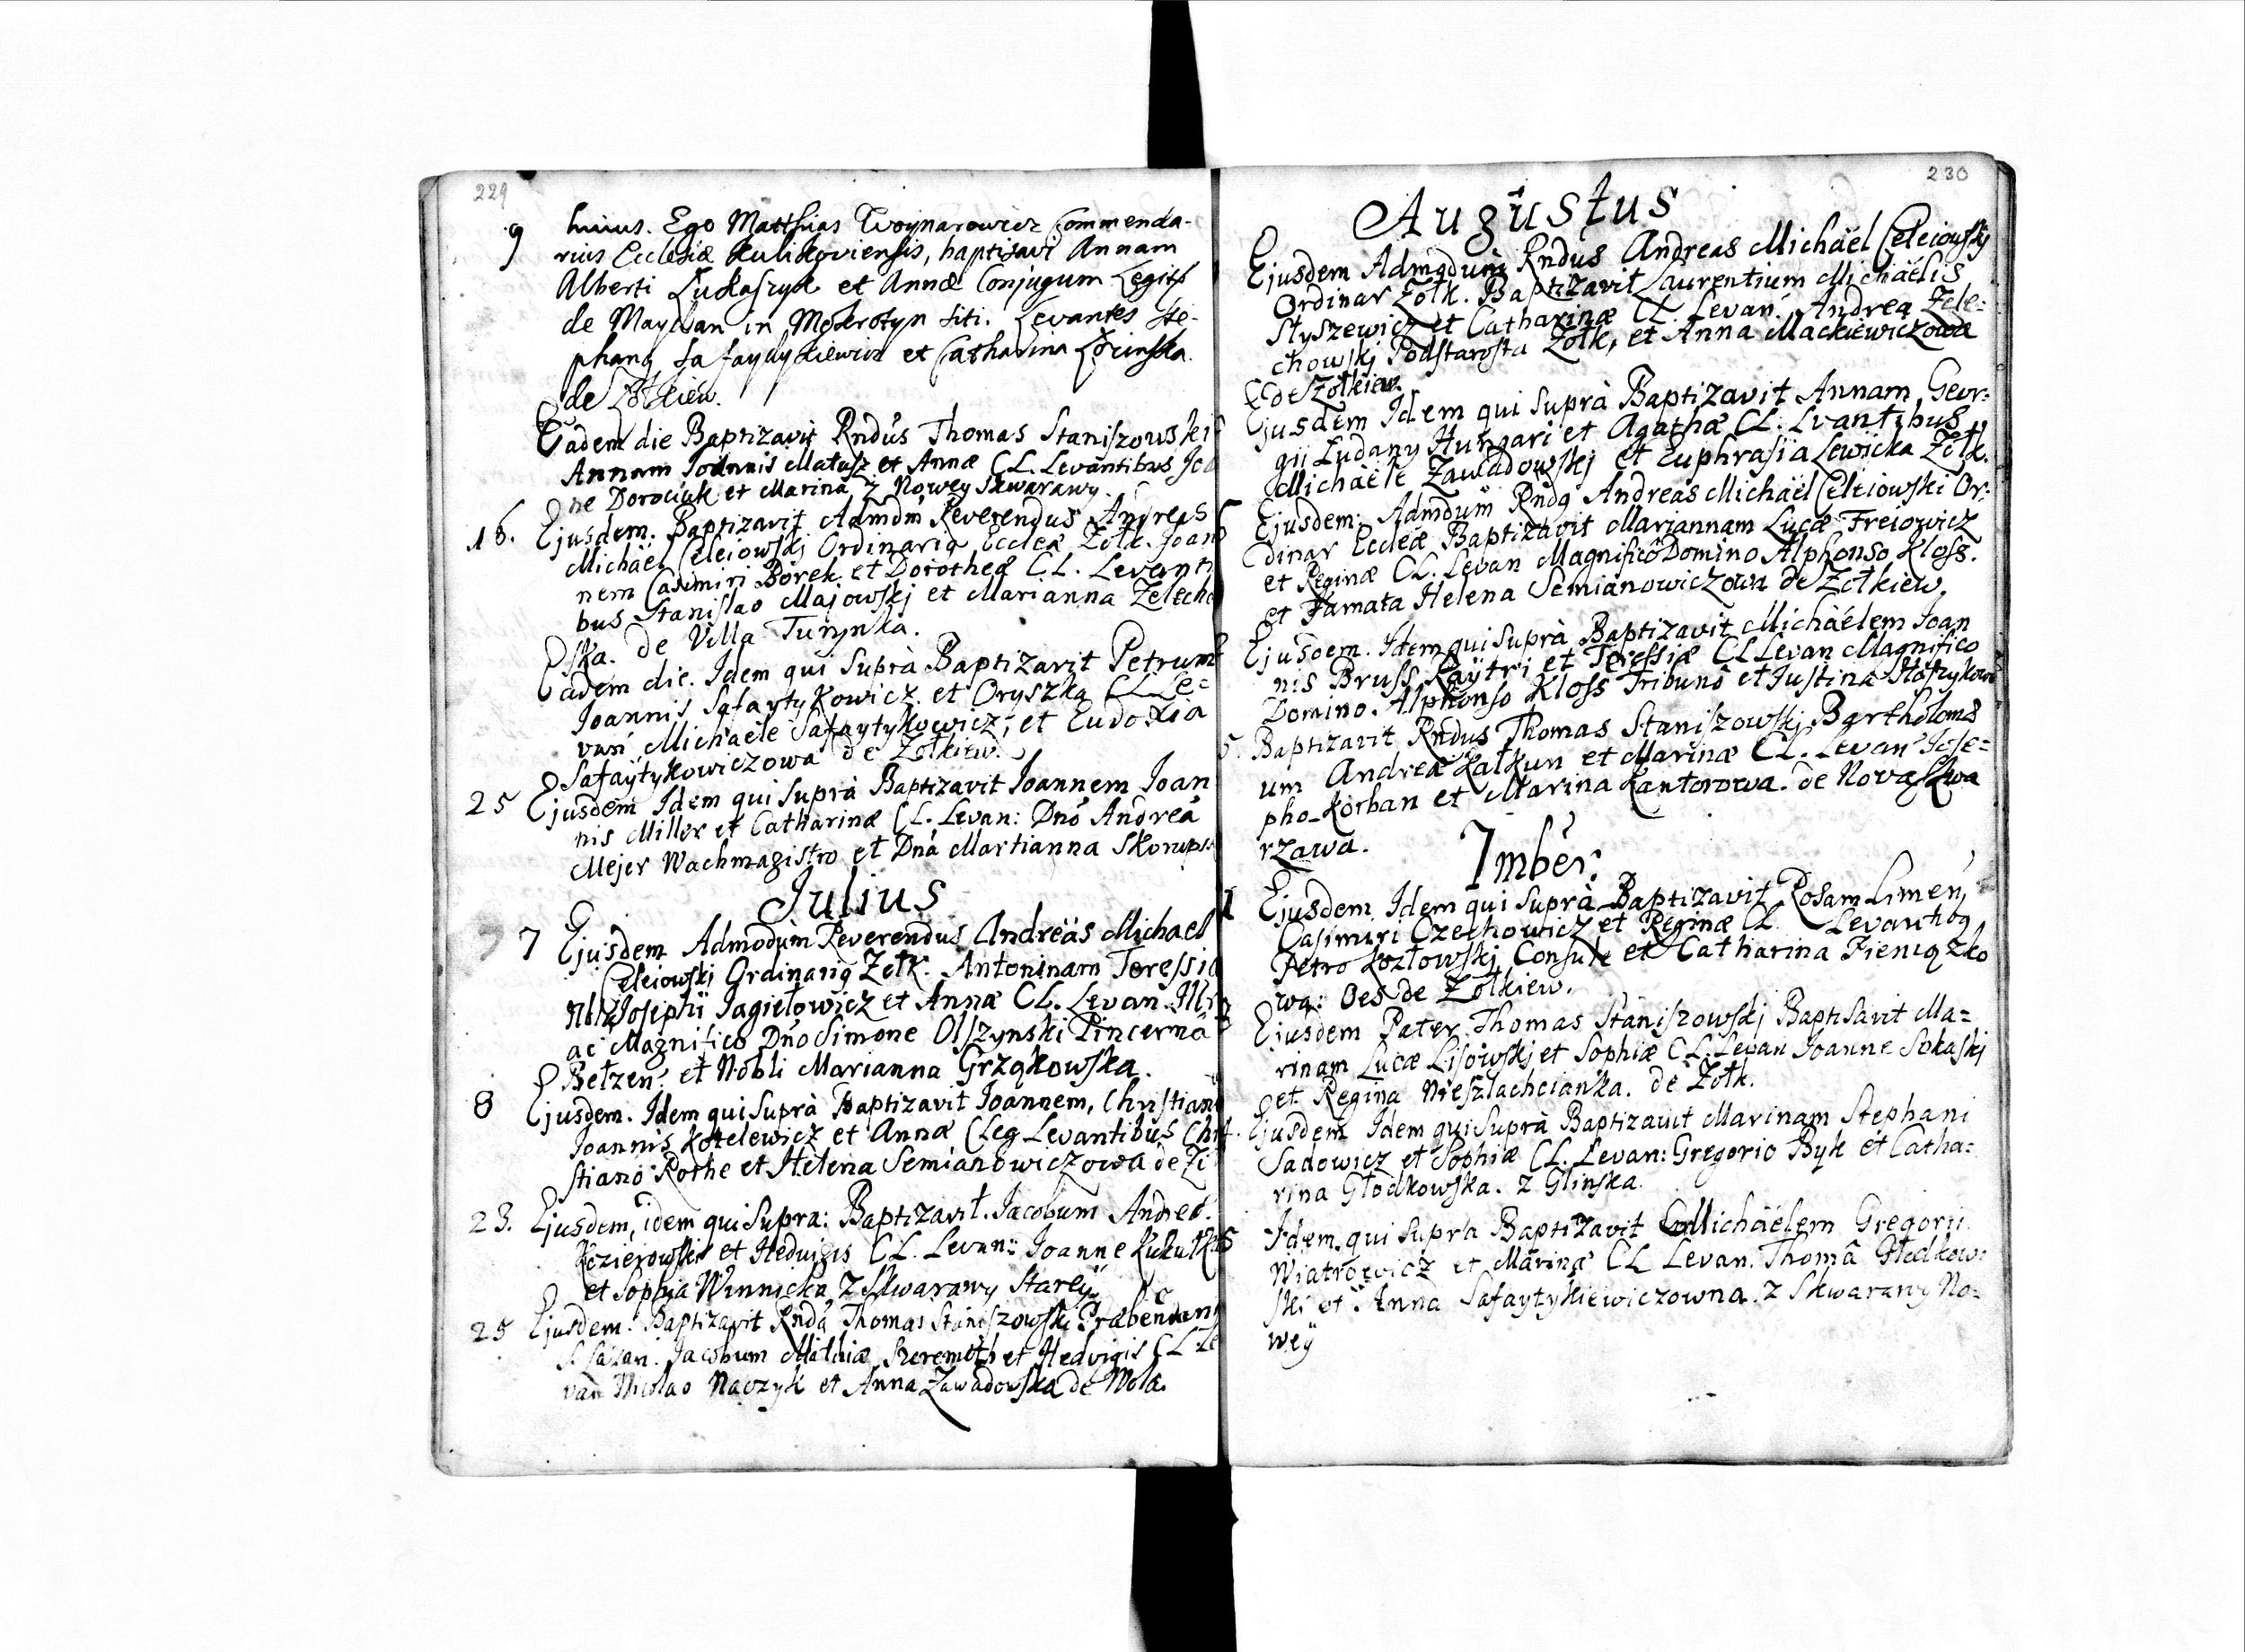 229
9 huius. Ego Matthias Woynarowicz Commenda-
rius Ecclesiæ Kulikoviensis, baptisavi Annam
Alberti Lukaszyk et Annæ Conjugum Legit
de Maydan in Mokrotyn siti. Levantes Ste-
phang Safaytykiewicz et Catharina
de Zołkiew.
Eadem die Baptizavit Rndus Thomas Staniszowski
Annam Joannis Matusz et Annæ CL. Levantibus Joa
ne Dorociak et Marina z Nowey Skwarawy.
16. Ejusdem. Baptizavit Admdm Reverendus Andreas
Michäel Celeiowskj Ordinarig Eccleæ Zołk. Joan
nem Casimiri Borek et Dorotheæ CL. Levanti
bus Stanislao Majowskj et Marianna Zelecho
ska. de Villa Turynka.
Eadem die. Idem qui suprà Baptizavit Petrum
Joannis Safaytykowicz et Oryszka CL Le=
van Michaele Safaytykowicz, et Eudoxia
Safaÿtykowiczowa de Zołkiew.
25 Ejusdem Idem qui suprà Baptizavit Joannem Joan
nis Miller et Catharinæ CL. Levan: Dnō Andreā
Mejer Wachmagistro et Dnā Martianna Skorups
Julius
7 7 Ejusdem Admodùm Reverendus Andreäs Michael
Celeiowskj Ordinarig Zołk. Antoninam Teressia
Josephi Jagiełowicz et Annæ CL. Levan. Illri
ac Magnifico Dnō Simone Olszynski Pincerna
Bełzen: et Nobli Marianna Grząkowska.
8 Ejusdem. Idem qui suprà Baptizavit Joannem, Christian
Joannis Kotelewicz et Annæ CLeg Levantibus Chri
stiano Rothe et Helena Semianowiczowa de Zi
23. Ejusdem, idem qui supra: Baptizavit. Jacobum Andreæ.
Kozierowski et Hedvigis CL. Levan: Joanne Kukułka
et Sophia Winnicka z Skwarawy Starey
25 Ejusdem: Baptizavit Rndg Thomas Staniszowski Præbendarig
S. Lazari. Jacobum Mathiæ Szeremeth et Hedvigis CL Le
van Nicolao Naczyk et Anna Zawadowska de Wola.
230
Augustus
Ejusdem Admodum Rndus Andreas Michäel Celeiowskj
Ordinar Zołk. Baptizavit Laurentium Michäelis
Styszewicz et Catharinæ CL. Levan. Andrea Zele:
chowskj Podstarosta Zołk, et Anna Mackiewiczowa
de Zołkiew.
Ejusdem Idem qui suprà Baptizavit Annam Geor:
gii Ludany Hungari et Agathæ CL. Lvantibus
Michäele Zawadowskj et Euphrasia Lewicka Zołk.
Ejusdem: Admdum Rndg Andreas Michäel Celeiowski Or:
dinar Eccleæ Baptizavit Mariannam Lucæ Freiowicz
et Reginæ CL. Levan Magnificō Domino Alphonso Kloss.
et Famata Helena Semianowiczowa de Zołkiew.
Ejusdem. Idem qui suprà Baptizavit Michäelem Joan
nis Bruss Raÿtri et Teressiæ CL Levan Magnifico
Domino. Alphonso Kloss Tribuno et Justina
5. Baptizavit Rndus Thomas Staniszowskj Bartholomæ
um Andreæ Kałkun et Marinæ CL. Levan Jose=
pho Korban et Marina Kantorowa. de Nova Skwa
rzawa.
7mber.
1 Ejusdem Idem qui suprà Baptizavit Rosam Limen,
Casimiri Czechowicz et Reginæ CL. Levantibg
Petro Kozłowskj Consule et Catharina Pieniązko
wa: Oes de Zołkiew.
Ejusdem Pater Thomas Staniszowskj Baptisavit Ma=
rinam Lucæ Lisowskj et Sophiæ CL. Levan Joanne Sokalskj
et Regina Nieszlachcianka. de Zołk.
Ejusdem Idem qui suprà Baptizavit Marinam Stephani
Sadowicz et Sophiæ CL. Levan: Gregorio Byk et Catha=
rina Głodkowska. z Glinska.
Idem qui supra Baptizavit Michäelem Gregorii
Wiatrowicz et Marinæ CL Levan. Thomâ Hładkow:
ski et Anna Safaytykiewiczowna. z Skwarawy No=
weÿ